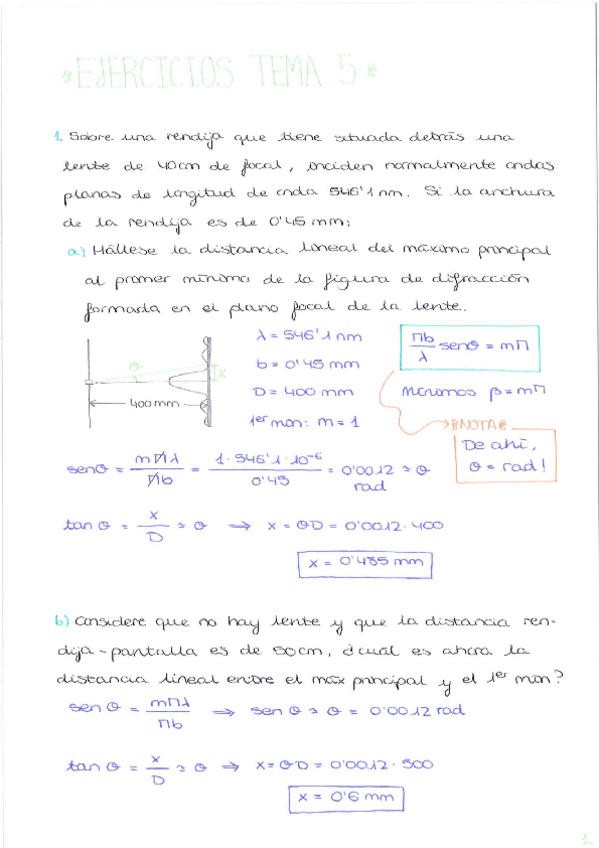 *EJERCICIOS TEMA 5*
1. Sobre una rendija que tiene situada detrás una
lente de 40cm de focal, inciden normalmente ondas
planas de longitud de onda 546'1 nm. Si la anchura
de la rendija es de 0'45 mm:
a) Hállese la distancia lineal del máximo principal
al primer mínimo de la figura de difracción
formada en el plano focal de la lente.
θ
x
400mm
λ = 546'1 nm
b = 0'45 mm
D = 400 mm
1er min: m = 1
Πb/λ senθ = mΠ
Mínimos β = mΠ
NOTA
De ahí,
θ = rad!
senθ = mΠλ/Πb = 1·546'1·10⁻⁶/0'45 = 0'0012 ≃ θ
rad
tan θ = x/D ≃ θ ⟹ x = θD = 0'0012·400
x = 0'485 mm
b) Considere que no hay lente y que la distancia ren-
dija-pantalla es de 50cm, ¿cuál es ahora la
distancia lineal entre el máx principal y el 1er min?
sen θ = mΠλ/Πb ⟹ sen θ ≃ θ = 0'0012 rad
tan θ = x/D ≃ θ ⟹ x = θD = 0'0012·500
x = 0'6 mm
1